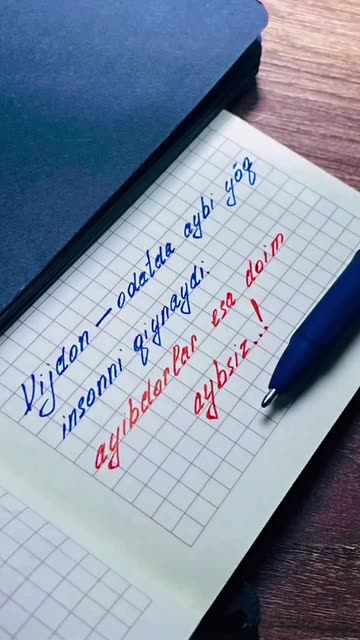 Vijdon – odatda aybi yōq
insonni qiynaydi.
ayibdorlar esa doim
aybsiz...!